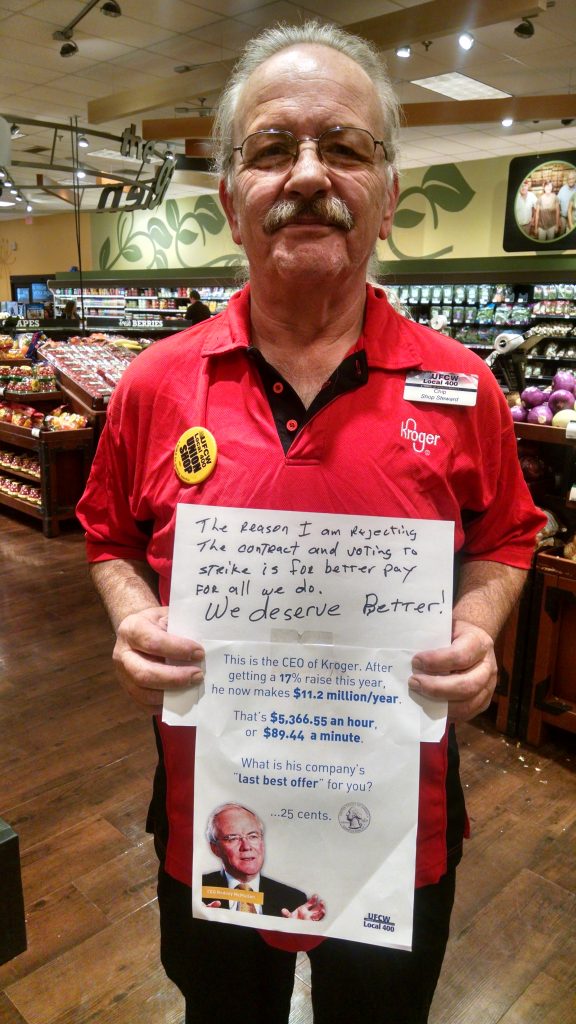 the
APES
BERRIES
UFCW
Local 400
UNION
SHOP
UFCW
Local 400
Chip
Shop Steward
Kroger
The Reason I am Rejecting
The contract and voting to
strike is for better pay
for all we do.
We deserve Better!
This is the CEO of Kroger. After
getting a 17% raise this year,
he now makes $11.2 million/year.
That's $5,366.55 an hour,
or $89.44 a minute.
What is his company's
"last best offer" for you?
...25 cents.
CEO Rodney McMullen
UFCW
Local 400